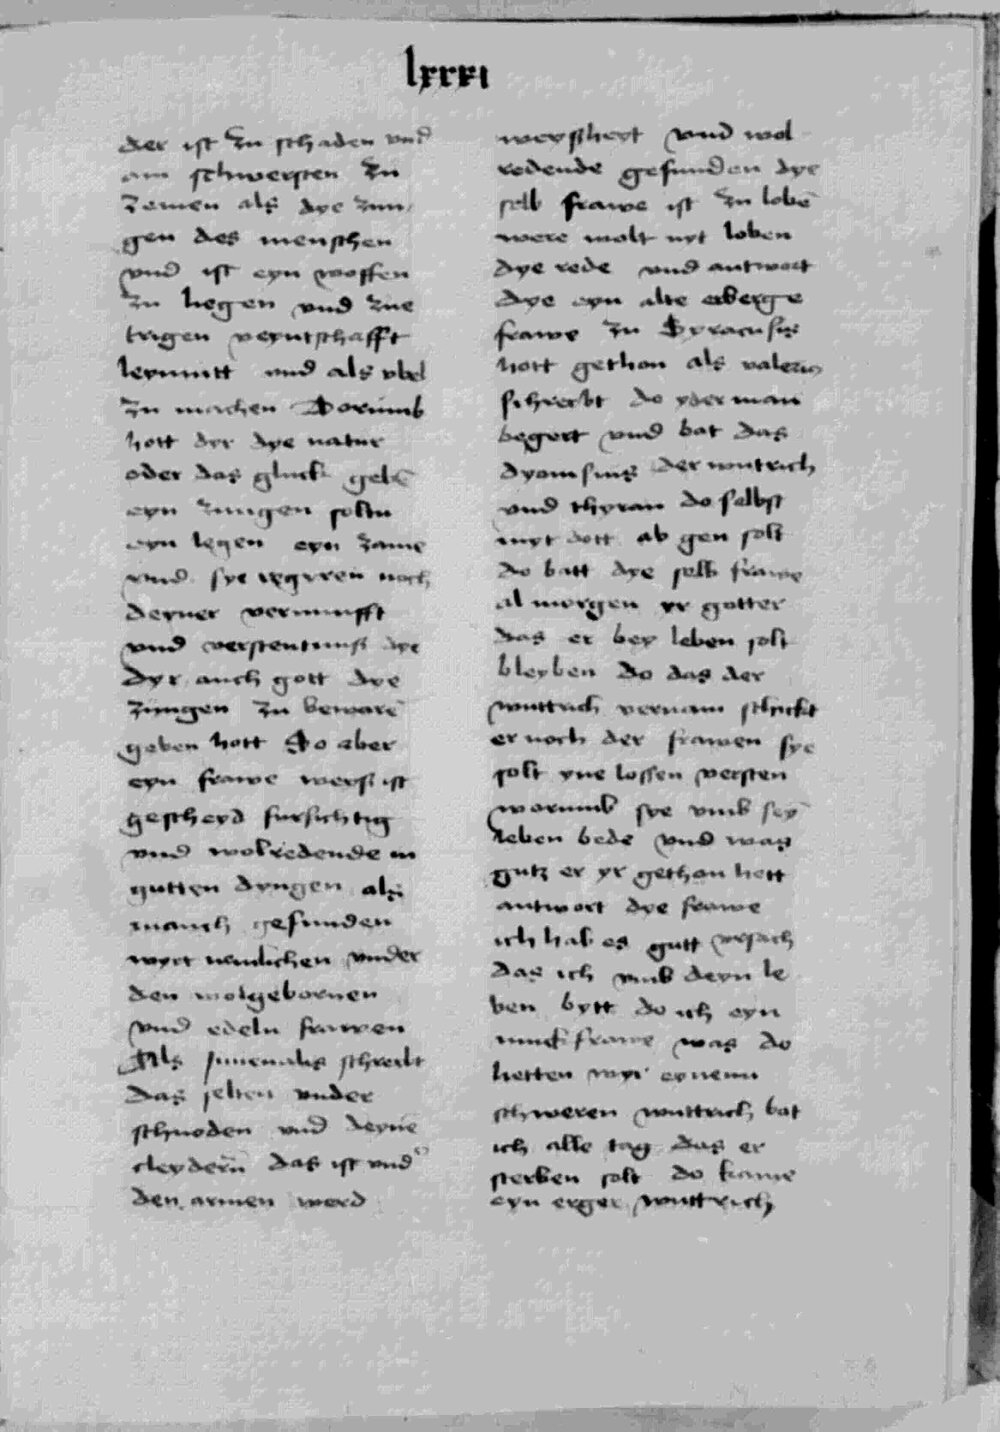 lxxxi
der ist zu schaden vnd
am schwersten zu
zemen als dye zun
gen des menschen
vnd ist eyn woffen
zu hegen vnd zue
trigen veyntschafft
leymutt vnd als vbel
zu machen Dorumb
hott dyr dye natur
oder das gluck gebē
eyn zungen soltu
eyn legen eyn zame
vnd sye regyren noch
deyner vernunfft
vnd verstentnuß dye
dyr auch gott dye
zungen zu bewarē
geben hott So aber
eyn frawe weyß ist
gescheyd fursichtig
vnd wolredende in
gutten dyngen als
manch gefunden
wyrt nemlichen vnder
den wolgebornen
vnd edeln frawen
Als Juuenalis schreibt
das selten vnder
schnoden vnd deynē
cleydern das ist vnd
den armen werd
weyßheyt vnd wol
redende gefunden dye
selb frawe ist zu lobē
were wolt nyt loben
dye rede vnd antwort
dye eyn alte erberge
frawe zu Syracusis
hott gethon als valerius
schreibt do yderman
begert vnd bat das
dyonisius der wutrich
vnd thyran do selbst
myt dott ab gen solt
do batt dye selb frawe
al morgen yr gotter
das er bey leben solt
bleyben do das der
wuttrich vernam schickt
er noch der frawen sye
solt yne lossen versten
worumb sye vmb sey
leben bede vnd was
gutz er yr gethon hett
antwort dye frawe
ich hab es gutt vrsach
das ich vmb deyn le
ben bytt do ich eyn
junckfrawe was do
hetten wyr eynenn
schweren wuttrich bat
ich alle tag das er
sterben solt do kame
eyn erger wuttrich